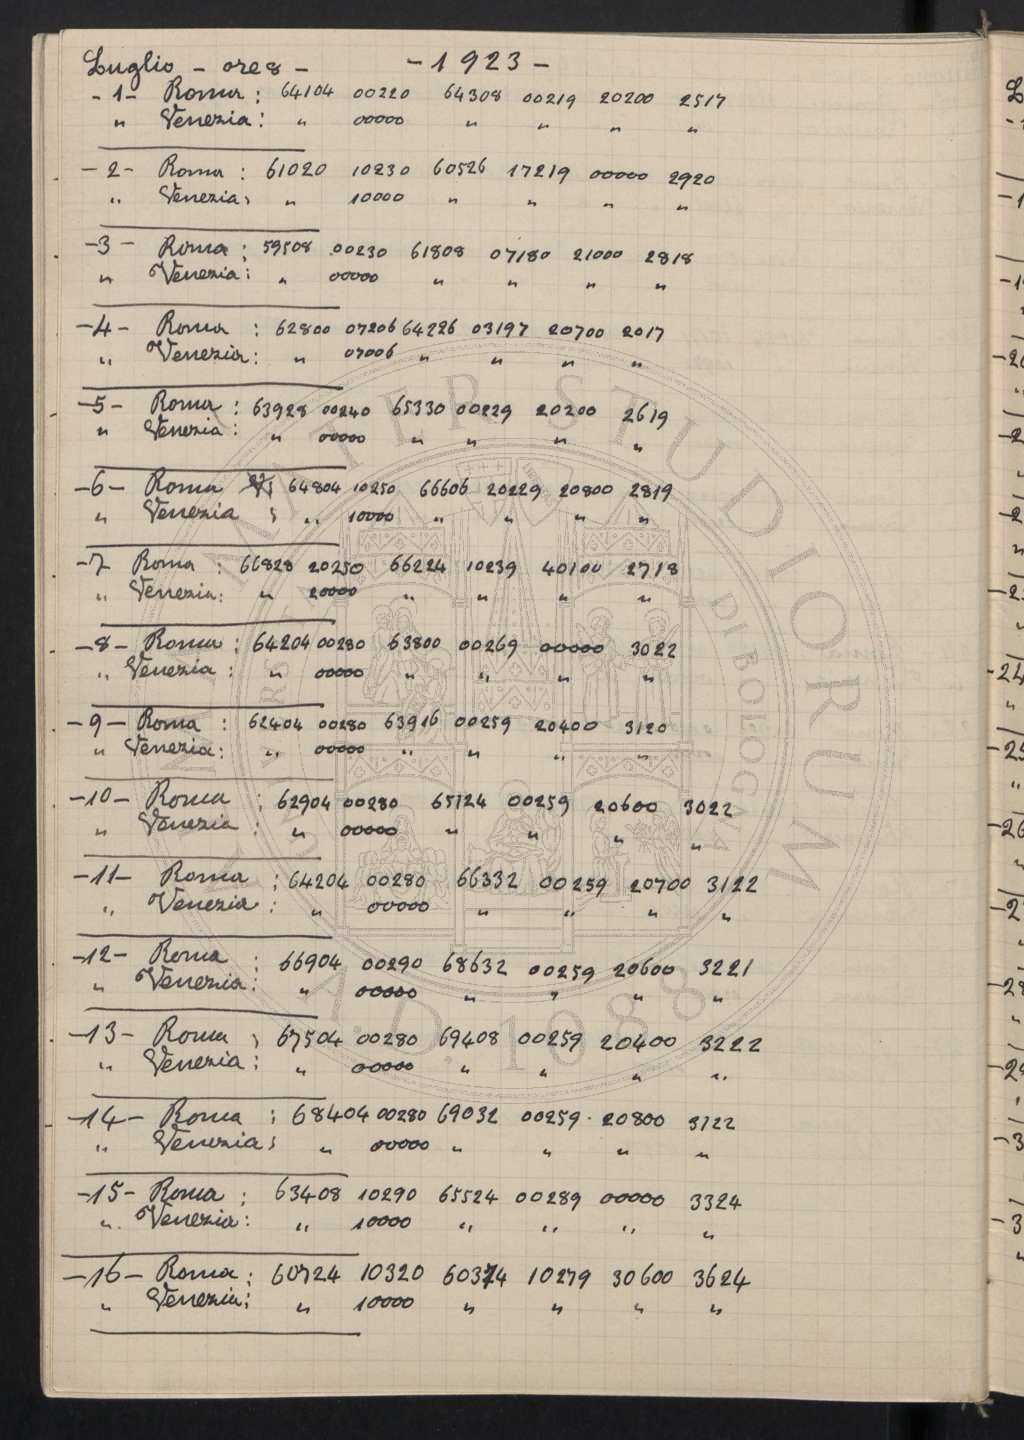 Luglio - ore 8 - - 1923 -
- 1 - Roma : 64104 00220 64308 00219 20200 2517
" Venezia : " 00000 " " " "
- 2 - Roma : 61020 10230 60526 17219 00000 2920
" Venezia : " 10000 " " " "
- 3 - Roma : 59508 00230 61808 07180 21000 2818
" Venezia : " 00000 " " " "
- 4 - Roma : 62800 07206 64226 03197 20700 2017
" Venezia : " 07006 " " " "
- 5 - Roma : 63928 00240 65330 00229 20200 2619
" Venezia : " 00000 " " " "
- 6 - Roma : 64804 10250 66606 20229 20800 2819
" Venezia : " 10000 " " " "
- 7 - Roma : 66828 20250 66224 10239 40100 2718
" Venezia : " 20000 " " " "
- 8 - Roma : 64204 00280 63800 00269 00000 3022
" Venezia : " 00000 " " " "
- 9 - Roma : 62404 00280 63916 00259 20400 3120
" Venezia : " 00000 " " " "
- 10 - Roma : 62904 00280 65124 00259 20600 3022
" Venezia : " 00000 " " " "
- 11 - Roma : 64204 00280 66332 00259 20700 3122
" Venezia : " 00000 " " " "
- 12 - Roma : 66904 00290 68632 00259 20600 3221
" Venezia : " 00000 " " " "
- 13 - Roma : 67504 00280 69408 00259 20400 3222
" Venezia : " 00000 " " " "
- 14 - Roma : 68404 00280 69032 00259 20800 3122
" Venezia : " 00000 " " " "
- 15 - Roma : 63408 10290 65524 00289 00000 3324
" Venezia : " 10000 " " " "
- 16 - Roma : 60724 10320 60374 10279 30600 3624
" Venezia : " 10000 " " " "
ALMA MATER STUDIORUM
A.D. 1088